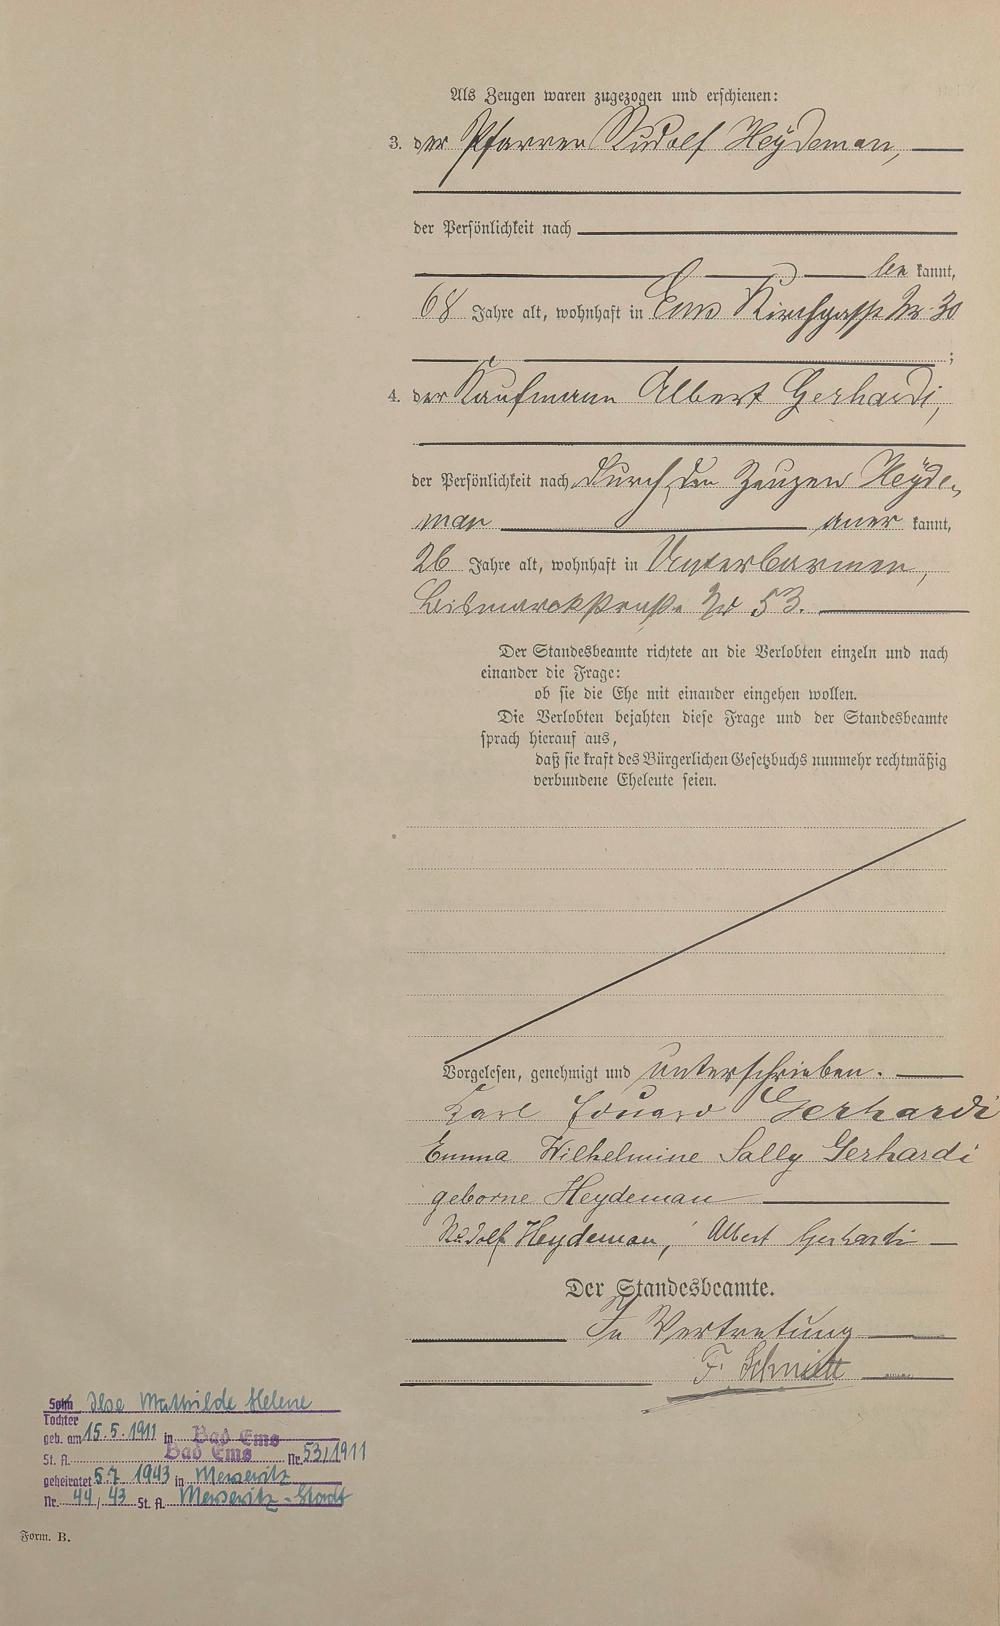 Als Zeugen waren zugezogen und erschienen:
3. der Pfarrer Rudolf Heydeman,
der Persönlichkeit nach
be kannt,
68 Jahre alt, wohnhaft in Ems Kirchgasse Nr 30
;
4. der Kaufmann Albert Gerhardi,
der Persönlichkeit nach durch den Zeugen Heyde-
man aner kannt,
26 Jahre alt, wohnhaft in Unterbarmen,
Bismarckstraße Nr 53.
Der Standesbeamte richtete an die Verlobten einzeln und nach
einander die Frage:
ob sie die Ehe mit einander eingehen wollen.
Die Verlobten bejahten diese Frage und der Standesbeamte
sprach hierauf aus,
daß sie kraft des Bürgerlichen Gesetzbuchs nunmehr rechtmäßig
verbundene Eheleute seien.
Vorgelesen, genehmigt und unterschrieben.
Karl Eduard Gerhardi
Emma Wilhelmine Sally Gerhardi
geborne Heydeman
Rudolf Heydeman, Albert Gerhardi
Der Standesbeamte.
In Vertretung
F. Schmitt
Sohn Ilse Mathilde Helene
Tochter
geb. am 15.5.1911 in Bad Ems
St. A. Bad Ems Nr. 53/1911
geheiratet 5.7. 1943 in Meseritz
Nr. 44/43 St. A. Meseritz-Stadt
Form. B.